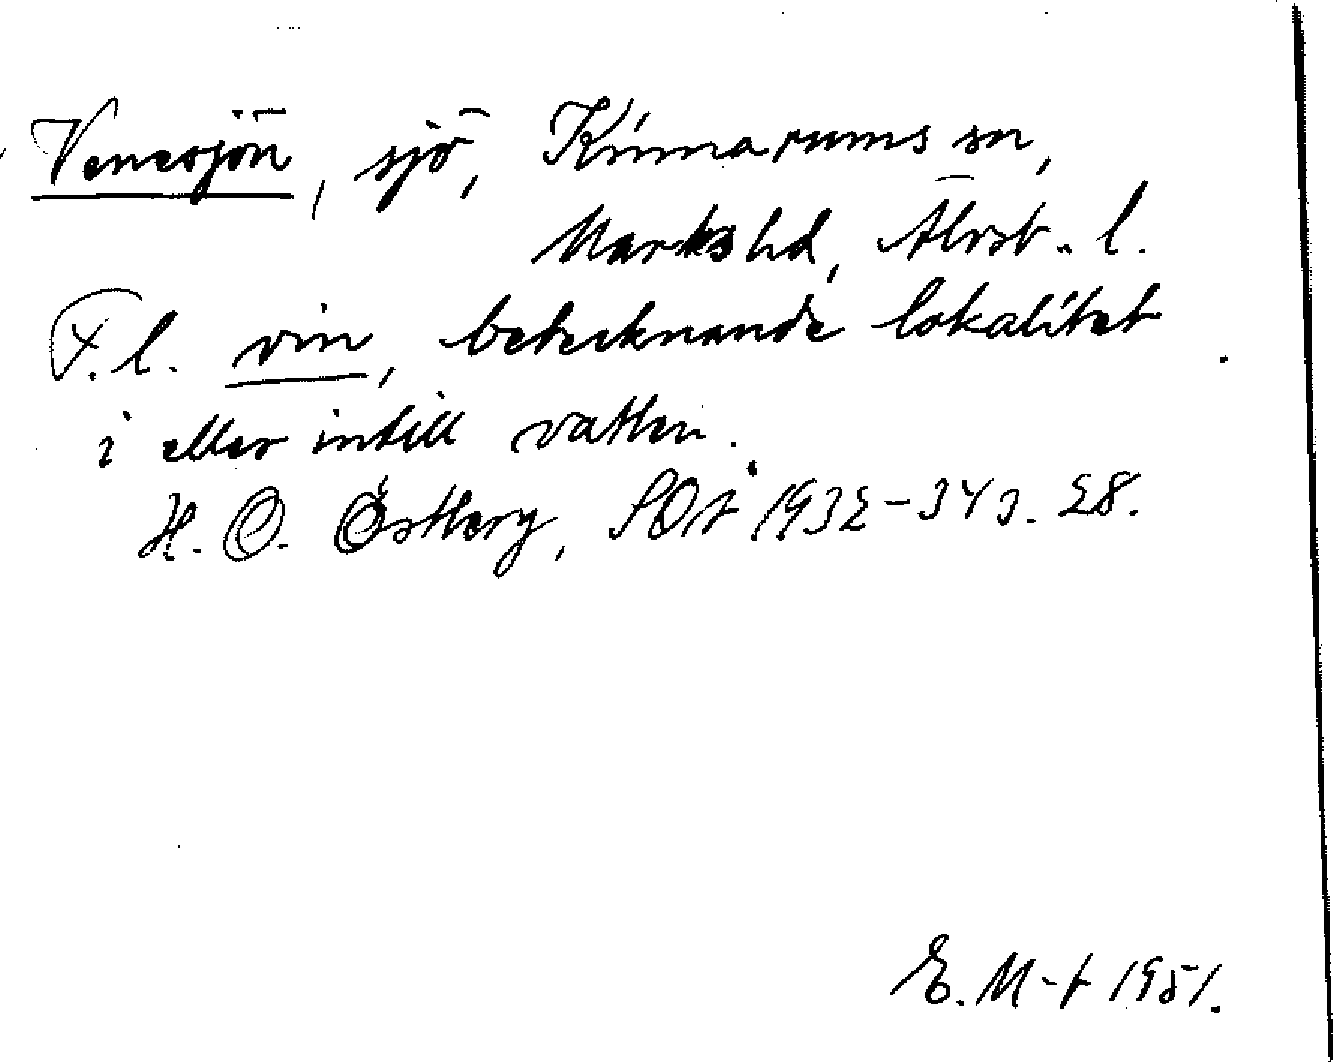 Venesjön, sjö, Kinnarums sn,
Marks hd, Älvsb. l.
F. l. vin, betecknande lokalitet
i eller intill vatten.
H. O. Östberg, SOÅ 1932-34 s. 28.
E. M-t 1951.